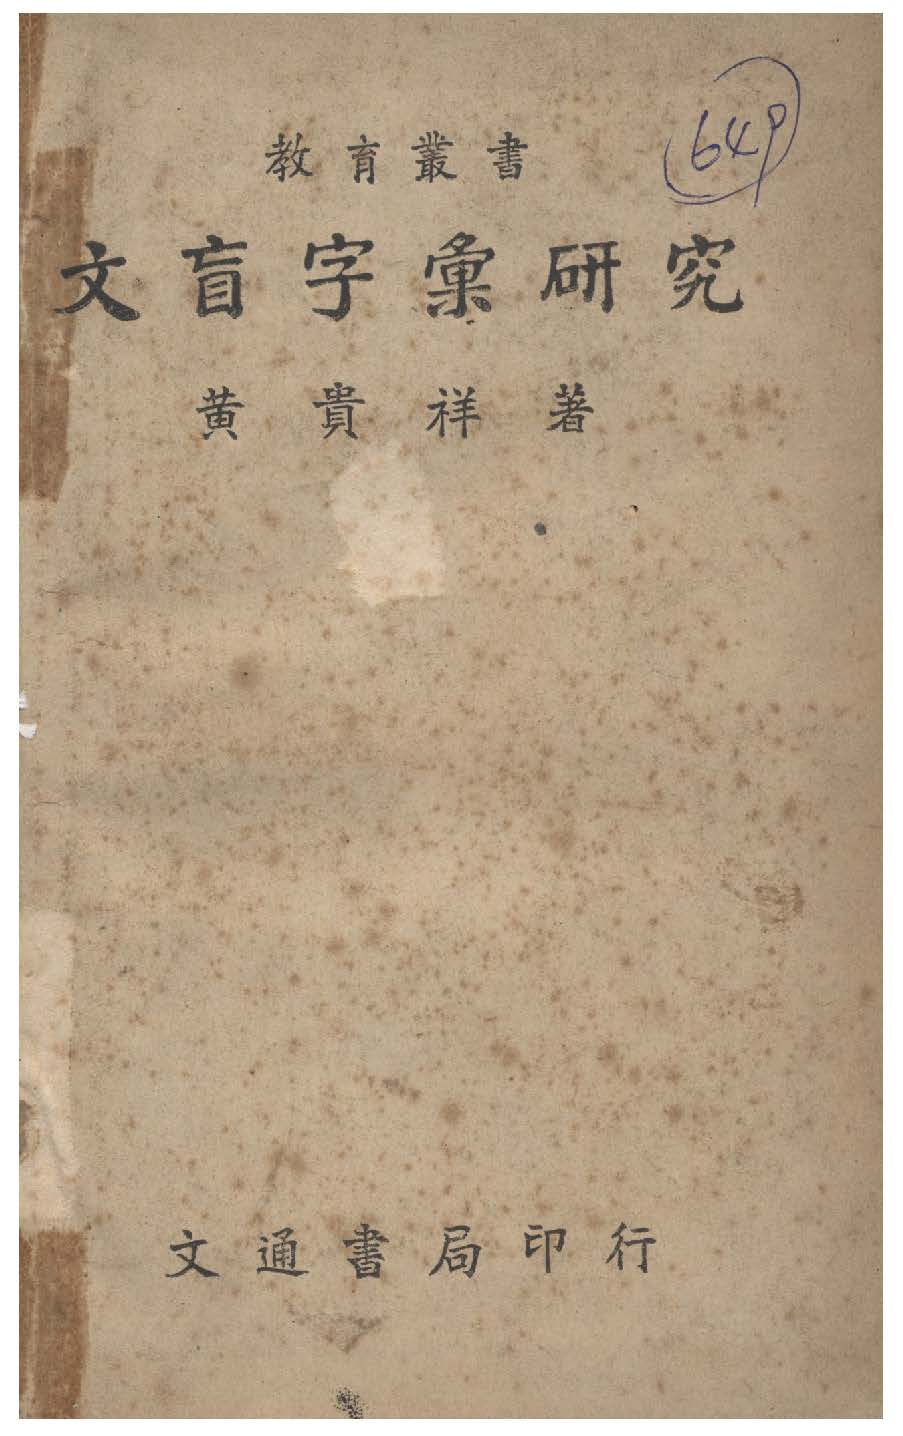 教育叢書
649
文盲字彙研究
黄貴祥著
文通書局印行